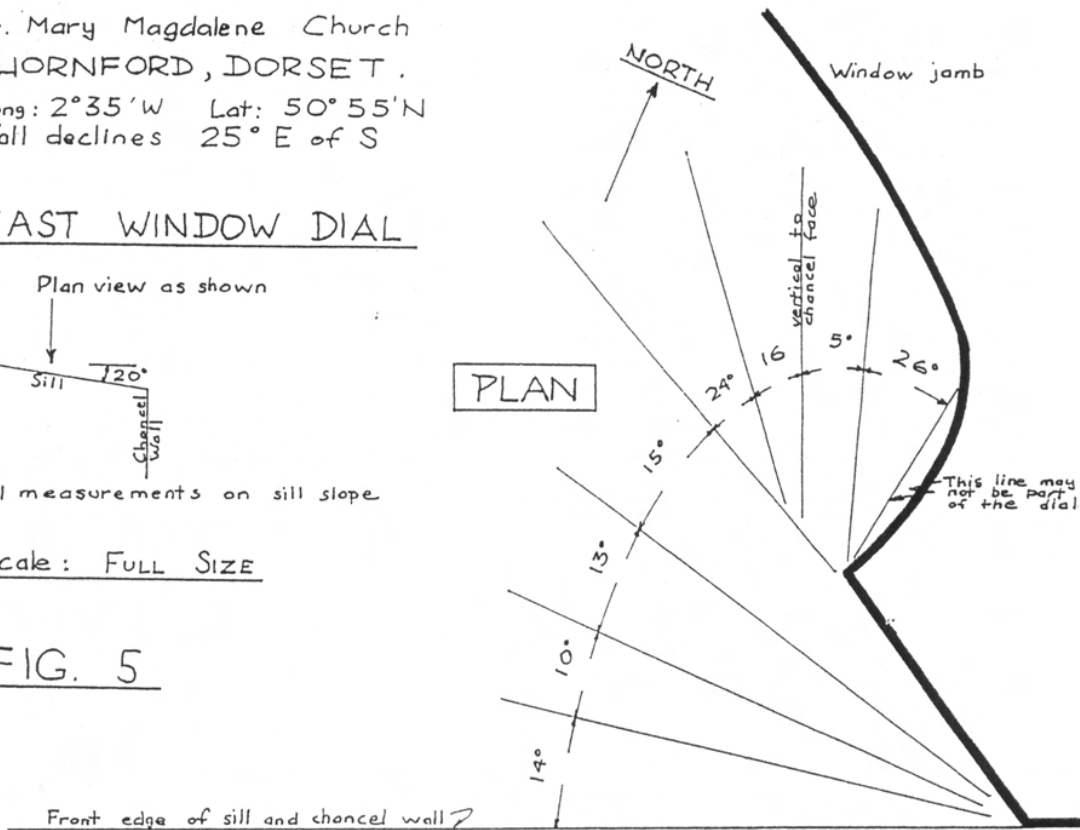 . Mary Magdalene Church
HORNFORD, DORSET.
ng: 2°35'W Lat: 50°55'N
all declines 25° E of S
AST WINDOW DIAL
Plan view as shown
Sill
20°
Chancel
Wall
l measurements on sill slope
cale: FULL SIZE
FIG. 5
Front edge of sill and chancel wall
PLAN
NORTH
Window jamb
vertical to
chancel face
5°
16
26°
24°
15°
13°
10°
14°
This line may
not be part
of the dial